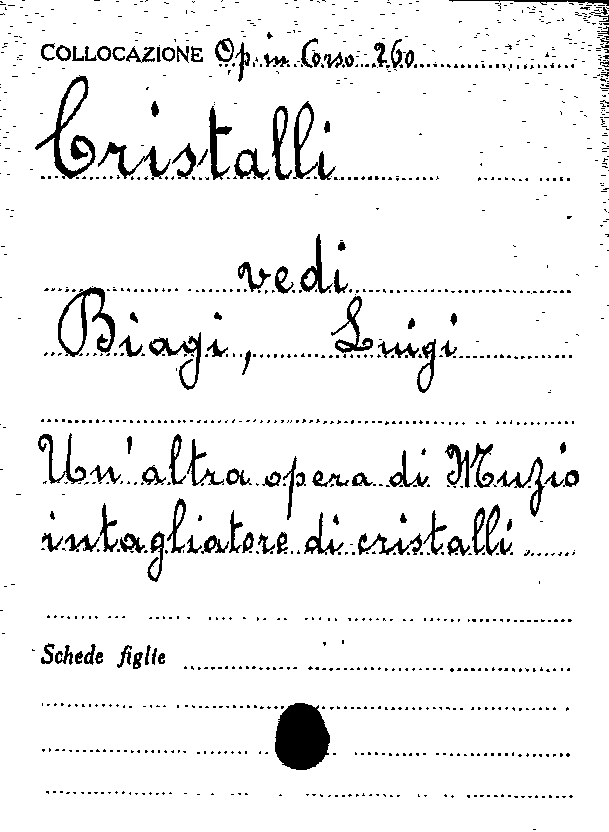 COLLOCAZIONE Op. in Corso 260
Cristalli
vedi
Biagi, Luigi
Un'altra opera di Muzio
intagliatore di cristalli
Schede figlie